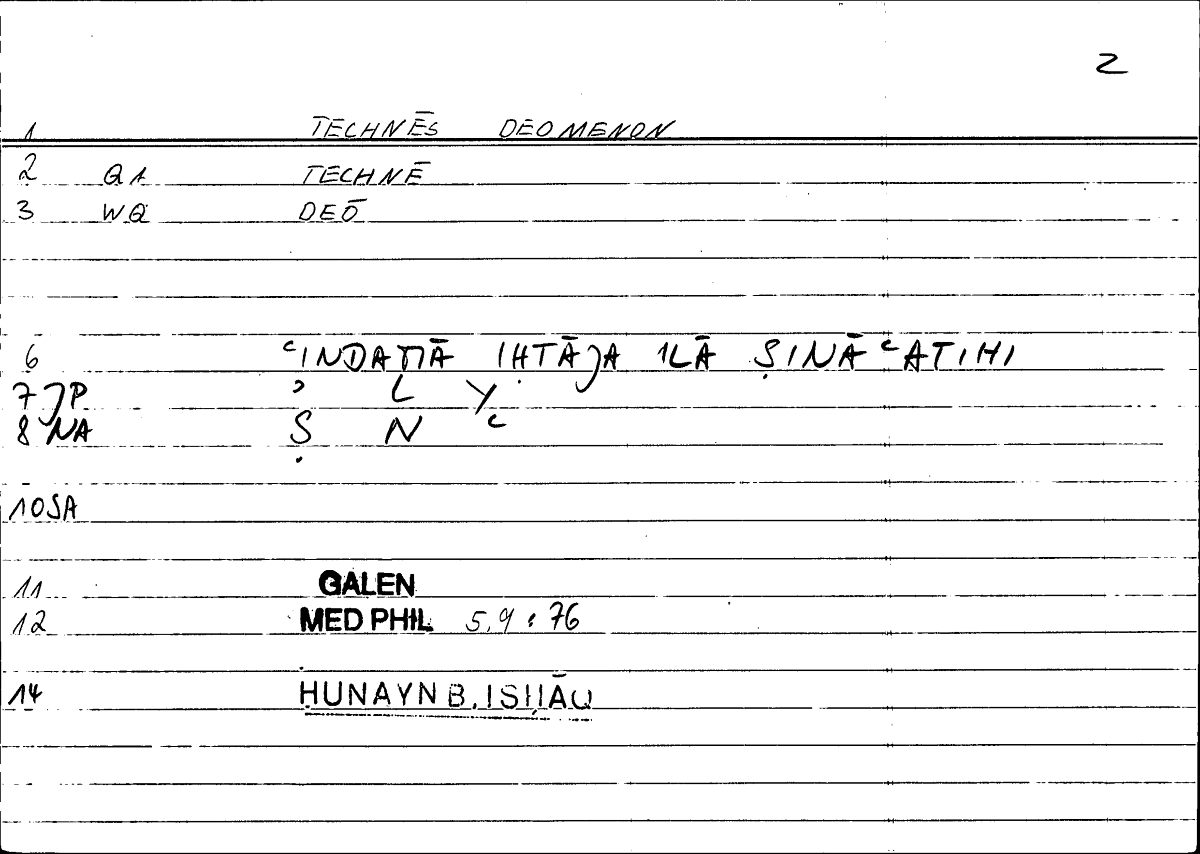 2
1 TECHNĒS DEOMENON
2 QA TECHNĒ
3 WQ DEŌ
6 ʿINDAMĀ IḤTĀJA ILĀ ṢINĀʿATIHI
7 JP ʾ L Y
8 NA Ṣ N ʿ
10 SA
11 GALEN
12 MED PHIL 5,9 : 76
14 ḤUNAYN B. ISḤĀQ